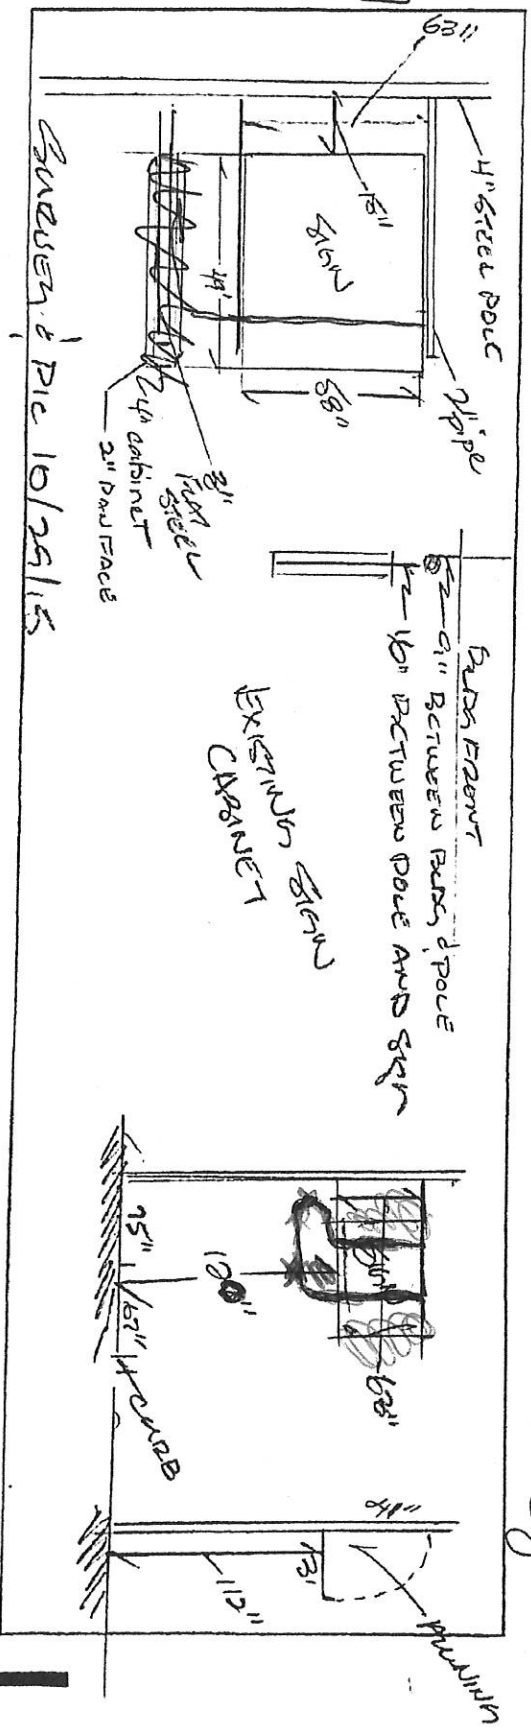 63"
4" STEEL POLE
2" pipe
15"
SIGN
49"
58"
3"
FLAT
STEEL
4" cabinet
2" PAN FACE
SURVEY & PIC 10/29/15
BLDG FRONT
9" BETWEEN BLDG & POLE
16" BETWEEN POLE AND SIGN
EXISTING SIGN
CABINET
68"
120"
95"
67"
CURB
112"
AWNING